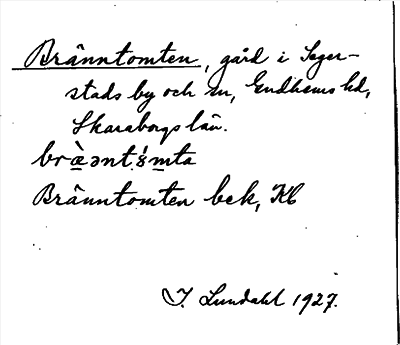 Bränntomten, gård i Seger-
stads by och sn, Gudhems hd,
Skaraborgs län.
Bränntomten bek, Kb
I. Lundahl 1927.